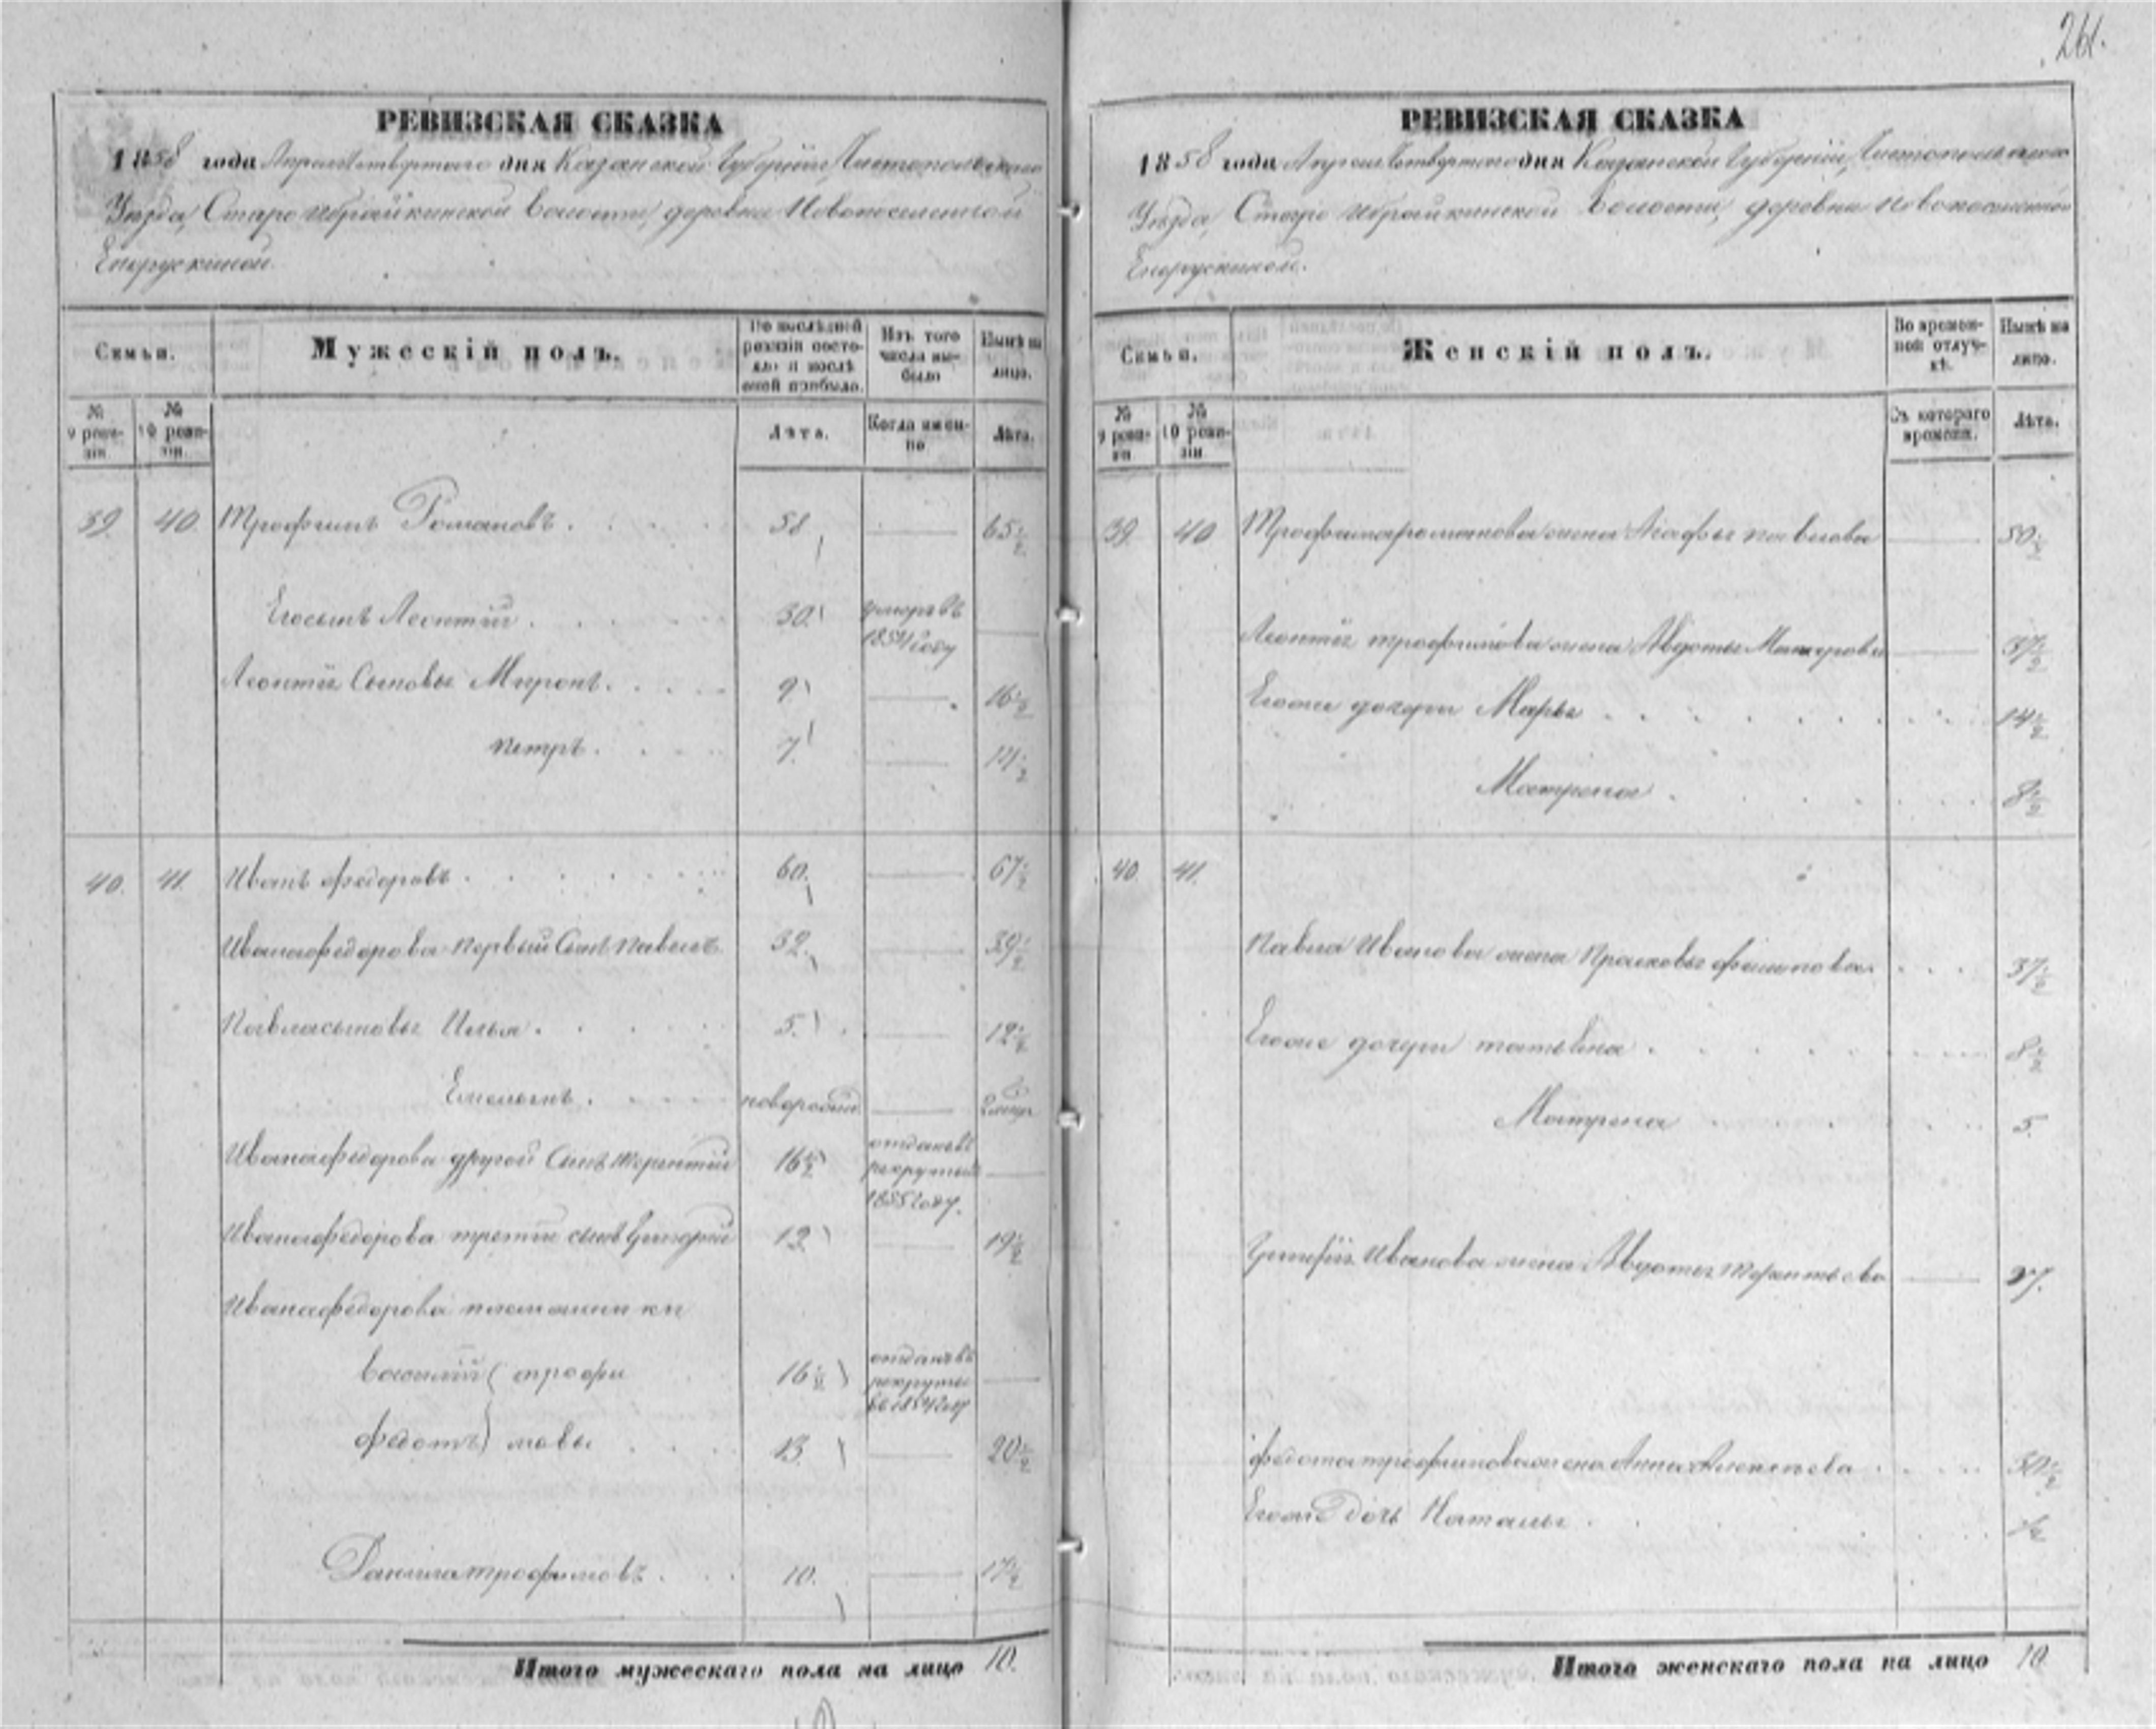 261.
РЕВИЗСКАЯ СКАЗКА
1858 года Апреля Четвертаго дня Казанской Губернии, Чистопольскаго
Уезда, Старо Ибрайкинской волости, деревни Новопоселенной
Енорускиной.
Семьи.
Мужескій полъ.
По послѣдней ревизіи состояло и послѣ оной прибыло.
Изъ того числа выбыло
Нынѣ на лицо.
№ 9 ревизіи.
№ 10 ревизіи.
Лѣта.
Когда именно
Лѣта.
39. 40. Трофимъ Романовъ. 58 65½
Егосынъ Леонтій. 30. умеръ въ 1854 году
Леонтія Сыновья Миронъ. 9. 16½
петръ. 7. 14½
40. 41. Иванъ федоровъ. 60. 67½
Иванафедорова первый Сынъ Павелъ. 32. 39½
Павласыновья Илья. 5. 12½
Емельянъ. новорожд
Иванафедорова другой Сынъ Терентий 16½ отданъ в рекруты 1855 году.
Иванафедорова третий сынъ Григорий 12 19½
Иванафедорова племянники
василий ( трофи 16½ отданъ в рекруты въ 1854 году
федотъ ) мовы 13. 20½
Данилатрофимовъ. 10. 17½
Итого мужескаго пола на лицо 10.
РЕВИЗСКАЯ СКАЗКА
1858 года Апреля Четвертаго дня Казанской Губернии, Чистопольскаго
Уезда, Старо Ибрайкинской волости, деревни Новопоселенной
Енорускиной.
Семьи.
Женскій полъ.
Во временной отлучкѣ.
Нынѣ на лицо.
№ 9 ревизіи
№ 10 ревизіи
Съ котораго времени.
Лѣта.
39. 40 Трофимаромановажена Агафья павлова 50½
Леонтия трофимова жена Авдотья 37½
Егоже дочери Марья 14½
Матрена 8½
40 41.
Павла Иванова жена Прасковья филипова. 37½
Егоже дочери татьяна 8½
Матрена 5.
Григория Иванова жена Авдотья Терентьева 27.
федотатрофимоважена Анна 30½
Егоже дочь Наталья ½
Итого женскаго пола на лицо 10.